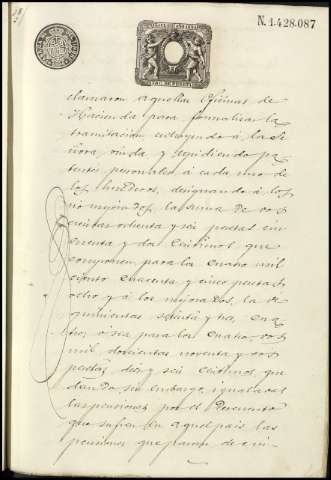 N. 1.428.087
clamaron aquellas Oficinas de
Hacienda para formalizar la
tramitacion excluyendo á la Se
ñora viuda y expidiendo pa
tentes personales á cada uno de
los herederos, designando á los
no mejorados la suma de dos
cientas ochenta y seis pesetas cin
cuenta y dos céntimos que
componen para los cuatro mil
ciento cuarenta y cinco pesetas
ocho y á los mejorados, la de
quinientas setenta y tres, cua
tro, ó sea para los cuatro, dos
mil doscientas noventa y dos
pesetas diez y seis céntimos, que
dando sin embargo, igualadas
las pensiones por el Descuento
que sufren en aquel pais las
pensiones que pasan de